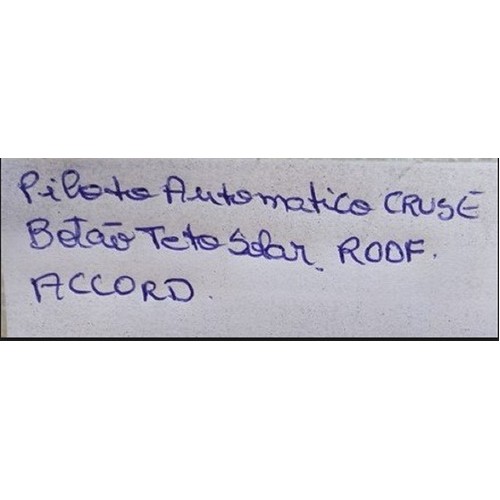 Piloto Automatico CRUSE
Botão Teto Solar. ROOF.
ACCORD.